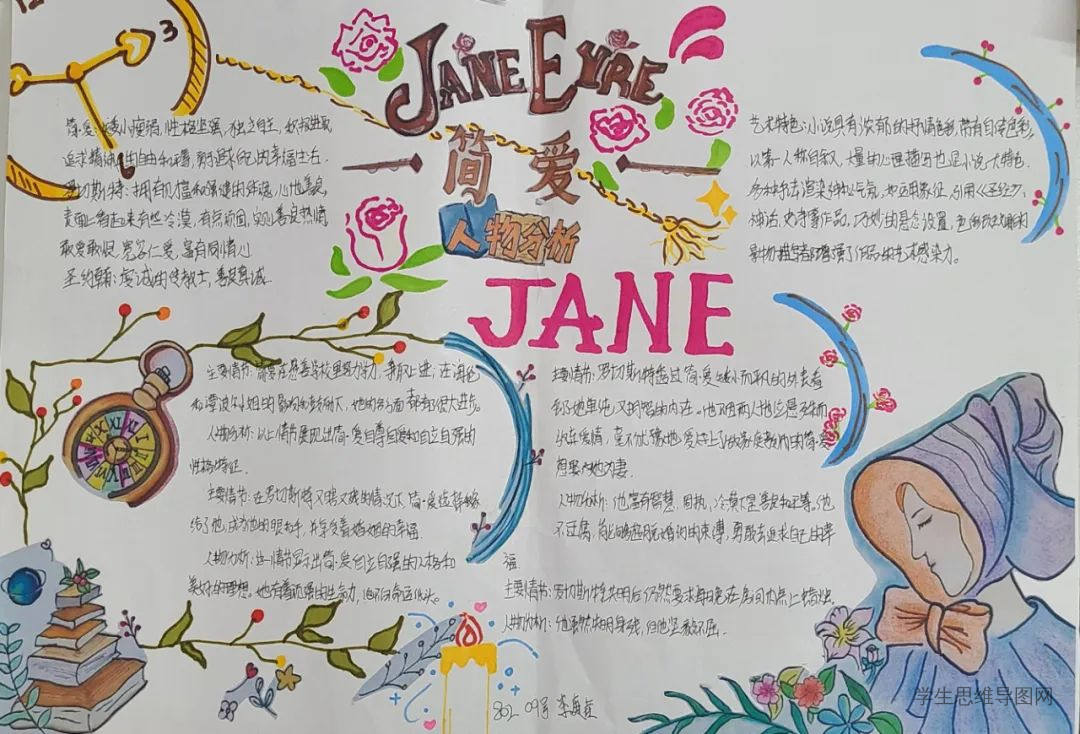 12
3
JANE EYRE
简爱
人物分析
JANE
简·爱:矮小瘦弱,性格坚强,独立自主,积极进取
追求精神的自由和平等,勇于追求自己的幸福生活。
罗切斯特:拥有机体和强健的体魄,心地善良,
表面上看起来有些冷漠,有点顽固,实则善良热情
敢爱敢恨,宽容仁爱,富有同情心
圣约翰:虔诚的传教士,善良真诚
艺术特色:小说具有浓郁的抒情色彩,带有自传色彩,
以第一人称自叙,大量的心理描写也是小说一大特色,
渲染神秘气氛,如运用象征,引用《圣经》,
神话,史诗等作品,巧妙的悬念设置,
增强了作品的艺术感染力。
主要情节:简·爱在慈善学校里努力学习,积极上进,在海伦
和谭波尔小姐的影响和鼓励下,她的各方面都有很大进步。
人物分析:以上情节展现出简·爱自尊自爱和自立自强的
性格特征。
主要情节:在罗切斯特又瞎又残的情况下,简·爱选择嫁
给了他,成为他的眼和手,并享受着婚姻的幸福
人物分析:这一情节显示出简·爱自立自强的人格和
美好的理想。她有着顽强的生命力,绝不向命运低头。
主要情节:罗切斯特透过简·爱矮小而平凡的外表看
到了她单纯又明智的内在。他不因两人地位悬殊而
放弃爱情,毫不犹豫地爱上了做家庭教师的简·爱
想要娶她为妻
人物分析:他富有智慧、固执,冷漠下是善良和平等。他
不迂腐,能够摆脱婚姻的束缚,勇敢去追求自己的幸
福
主要情节:罗切斯特失明后仍然要求每晚在房间内点上蜡烛
人物分析:他虽然失明身残,但他坚毅不屈
802 09号 李
学生思维导图网